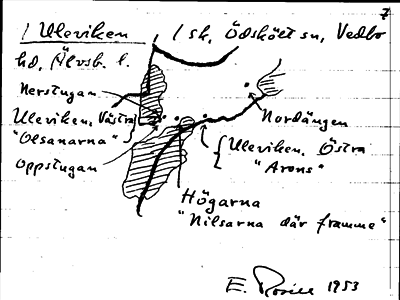 7
/ Uleviken / sk, Ödsköլt sn, Vedbo
hd, Älvsb. l.
Nerstugan
Uleviken, Västra
"Olsanarna"
Oppstugan
Nordängen
Uleviken, Östra
"Arons"
Högarna
"Nilsarna där framme"
E. 1953